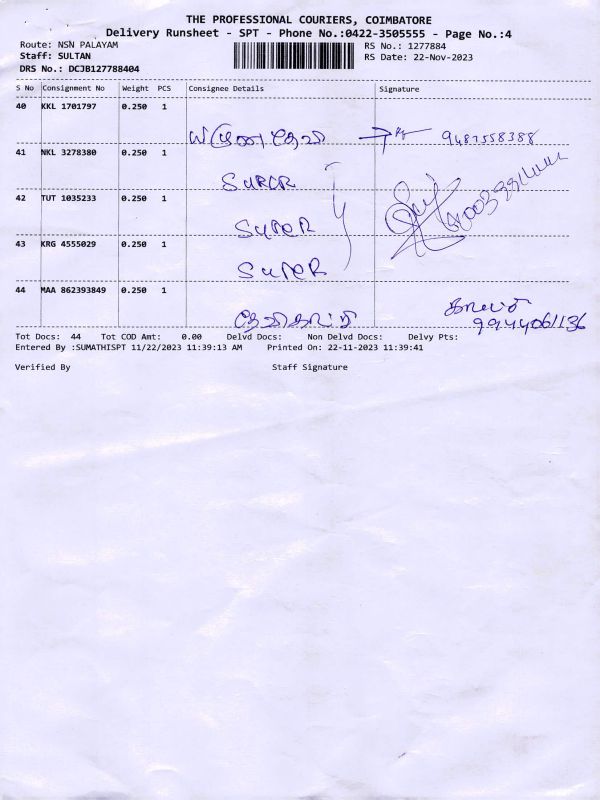 THE PROFESSIONAL COURIERS, COIMBATORE
Delivery Runsheet - SPT - Phone No.:0422-3505555 - Page No.:4
Route: NSN PALAYAM
RS No.: 1277884
Staff: SULTAN
RS Date: 22-Nov-2023
DRS No.: DCJB127788404
S No Consignment No Weight PCS Consignee Details Signature
40 KKL 1701797 0.250 1
9487558388
41 NKL 3278380 0.250 1
SUPER
42 TUT 1035233 0.250 1
SUPER
43 KRG 4555029 0.250 1
SUPER
44 MAA 862393849 0.250 1
9944061136
Tot Docs: 44 Tot COD Amt: 0.00 Delvd Docs: Non Delvd Docs: Delvy Pts:
Entered By :SUMATHISPT 11/22/2023 11:39:13 AM Printed On: 22-11-2023 11:39:41
Verified By Staff Signature